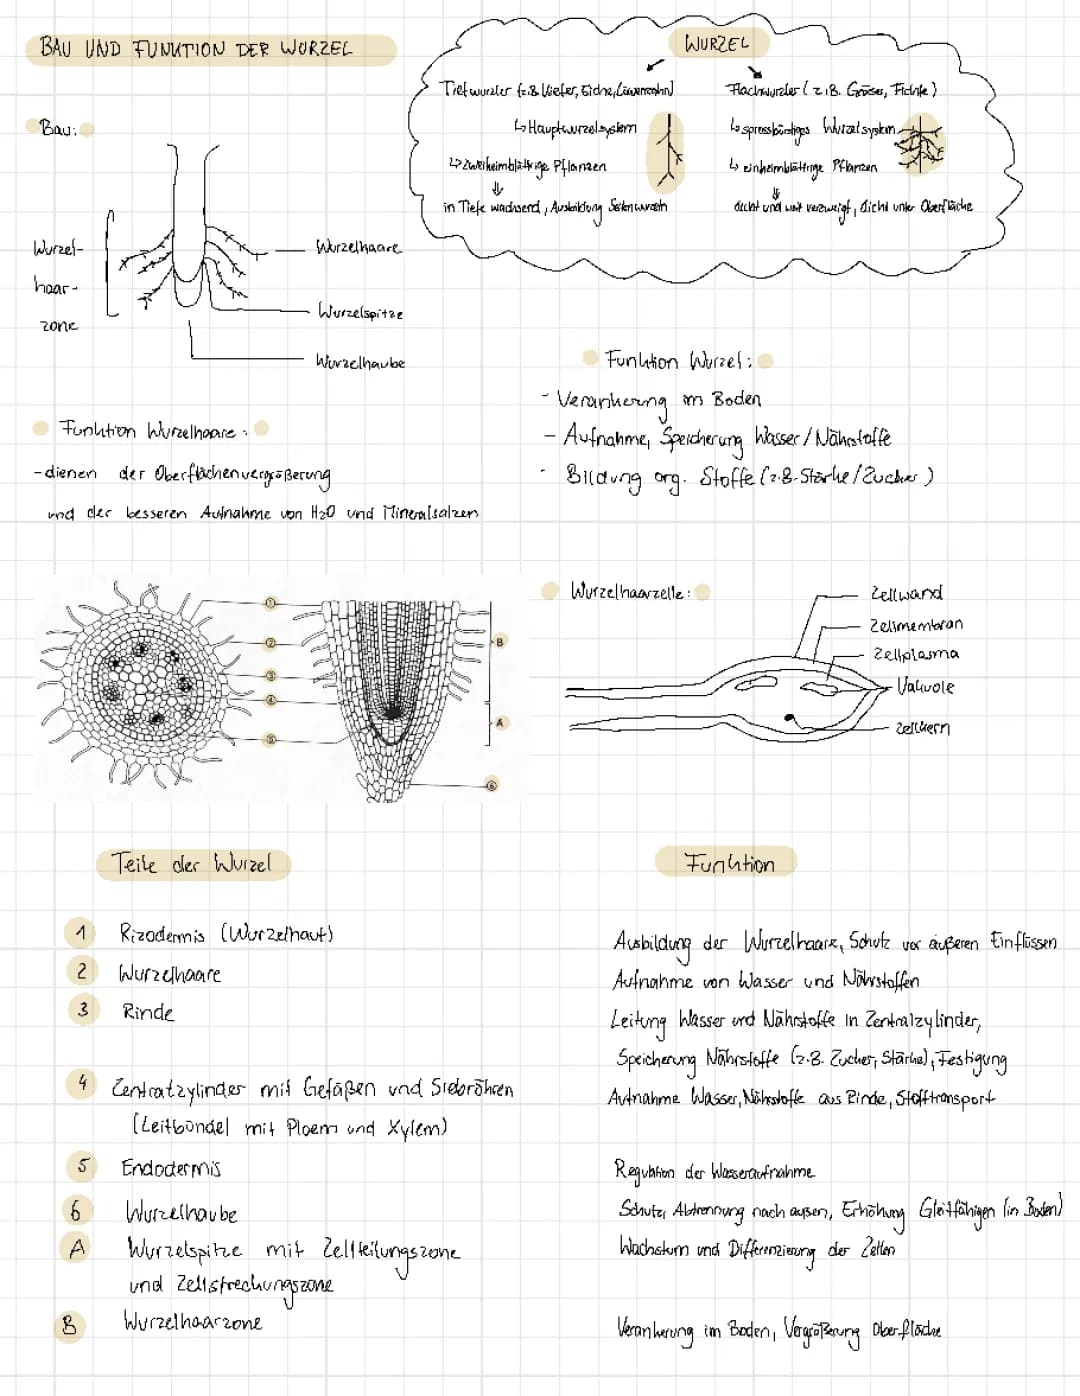 BAU UND FUNKTION DER WURZEL
WURZEL
Tiefwurzler (z.B. Kiefer, Eiche, Löwenzahn)
↳ Hauptwurzelsystem
↳ zweikeimblättrige Pflanzen
⇓
in Tiefe wachsend, Ausbildung Seitenwurzeln
Flachwurzler (z.B. Gräser, Fichte)
↳ sprossbürtiges Wurzelsystem
↳ einkeimblättrige Pflanzen
⇓
dicht und weit verzweigt, dicht unter Oberfläche
Bau:
Wurzel-
haar-
zone
Wurzelhaare
Wurzelspitze
Wurzelhaube
Funktion Wurzel:
- Verankerung im Boden
- Aufnahme, Speicherung Wasser/Nährstoffe
- Bildung org. Stoffe (z.B. Stärke/Zucker)
Funktion Wurzelhaare:
- dienen der Oberflächenvergrößerung
und der besseren Aufnahme von H2O und Mineralsalzen
1
2
3
4
5
B
A
6
Wurzelhaarzelle:
Zellwand
Zellmembran
Zellplasma
Vakuole
Zellkern
Teile der Wurzel
Funktion
1 Rizodermis (Wurzelhaut)
Ausbildung der Wurzelhaare, Schutz vor äußeren Einflüssen
2 Wurzelhaare
Aufnahme von Wasser und Nährstoffen
3 Rinde
Leitung Wasser und Nährstoffe in Zentralzylinder,
Speicherung Nährstoffe (z.B. Zucker, Stärke), Festigung
4 Zentralzylinder mit Gefäßen und Siebröhren
(Leitbündel mit Ploem und Xylem)
Aufnahme Wasser, Nährstoffe aus Rinde, Stofftransport
5 Endodermis
Regulation der Wasseraufnahme
6 Wurzelhaube
Schutz, Abtrennung nach außen, Erhöhung Gleitfähigen (in Boden)
A Wurzelspitze mit Zellteilungszone
und Zellstreckungszone
Wachstum und Differenzierung der Zellen
B Wurzelhaarzone
Verankerung im Boden, Vergrößerung Oberfläche